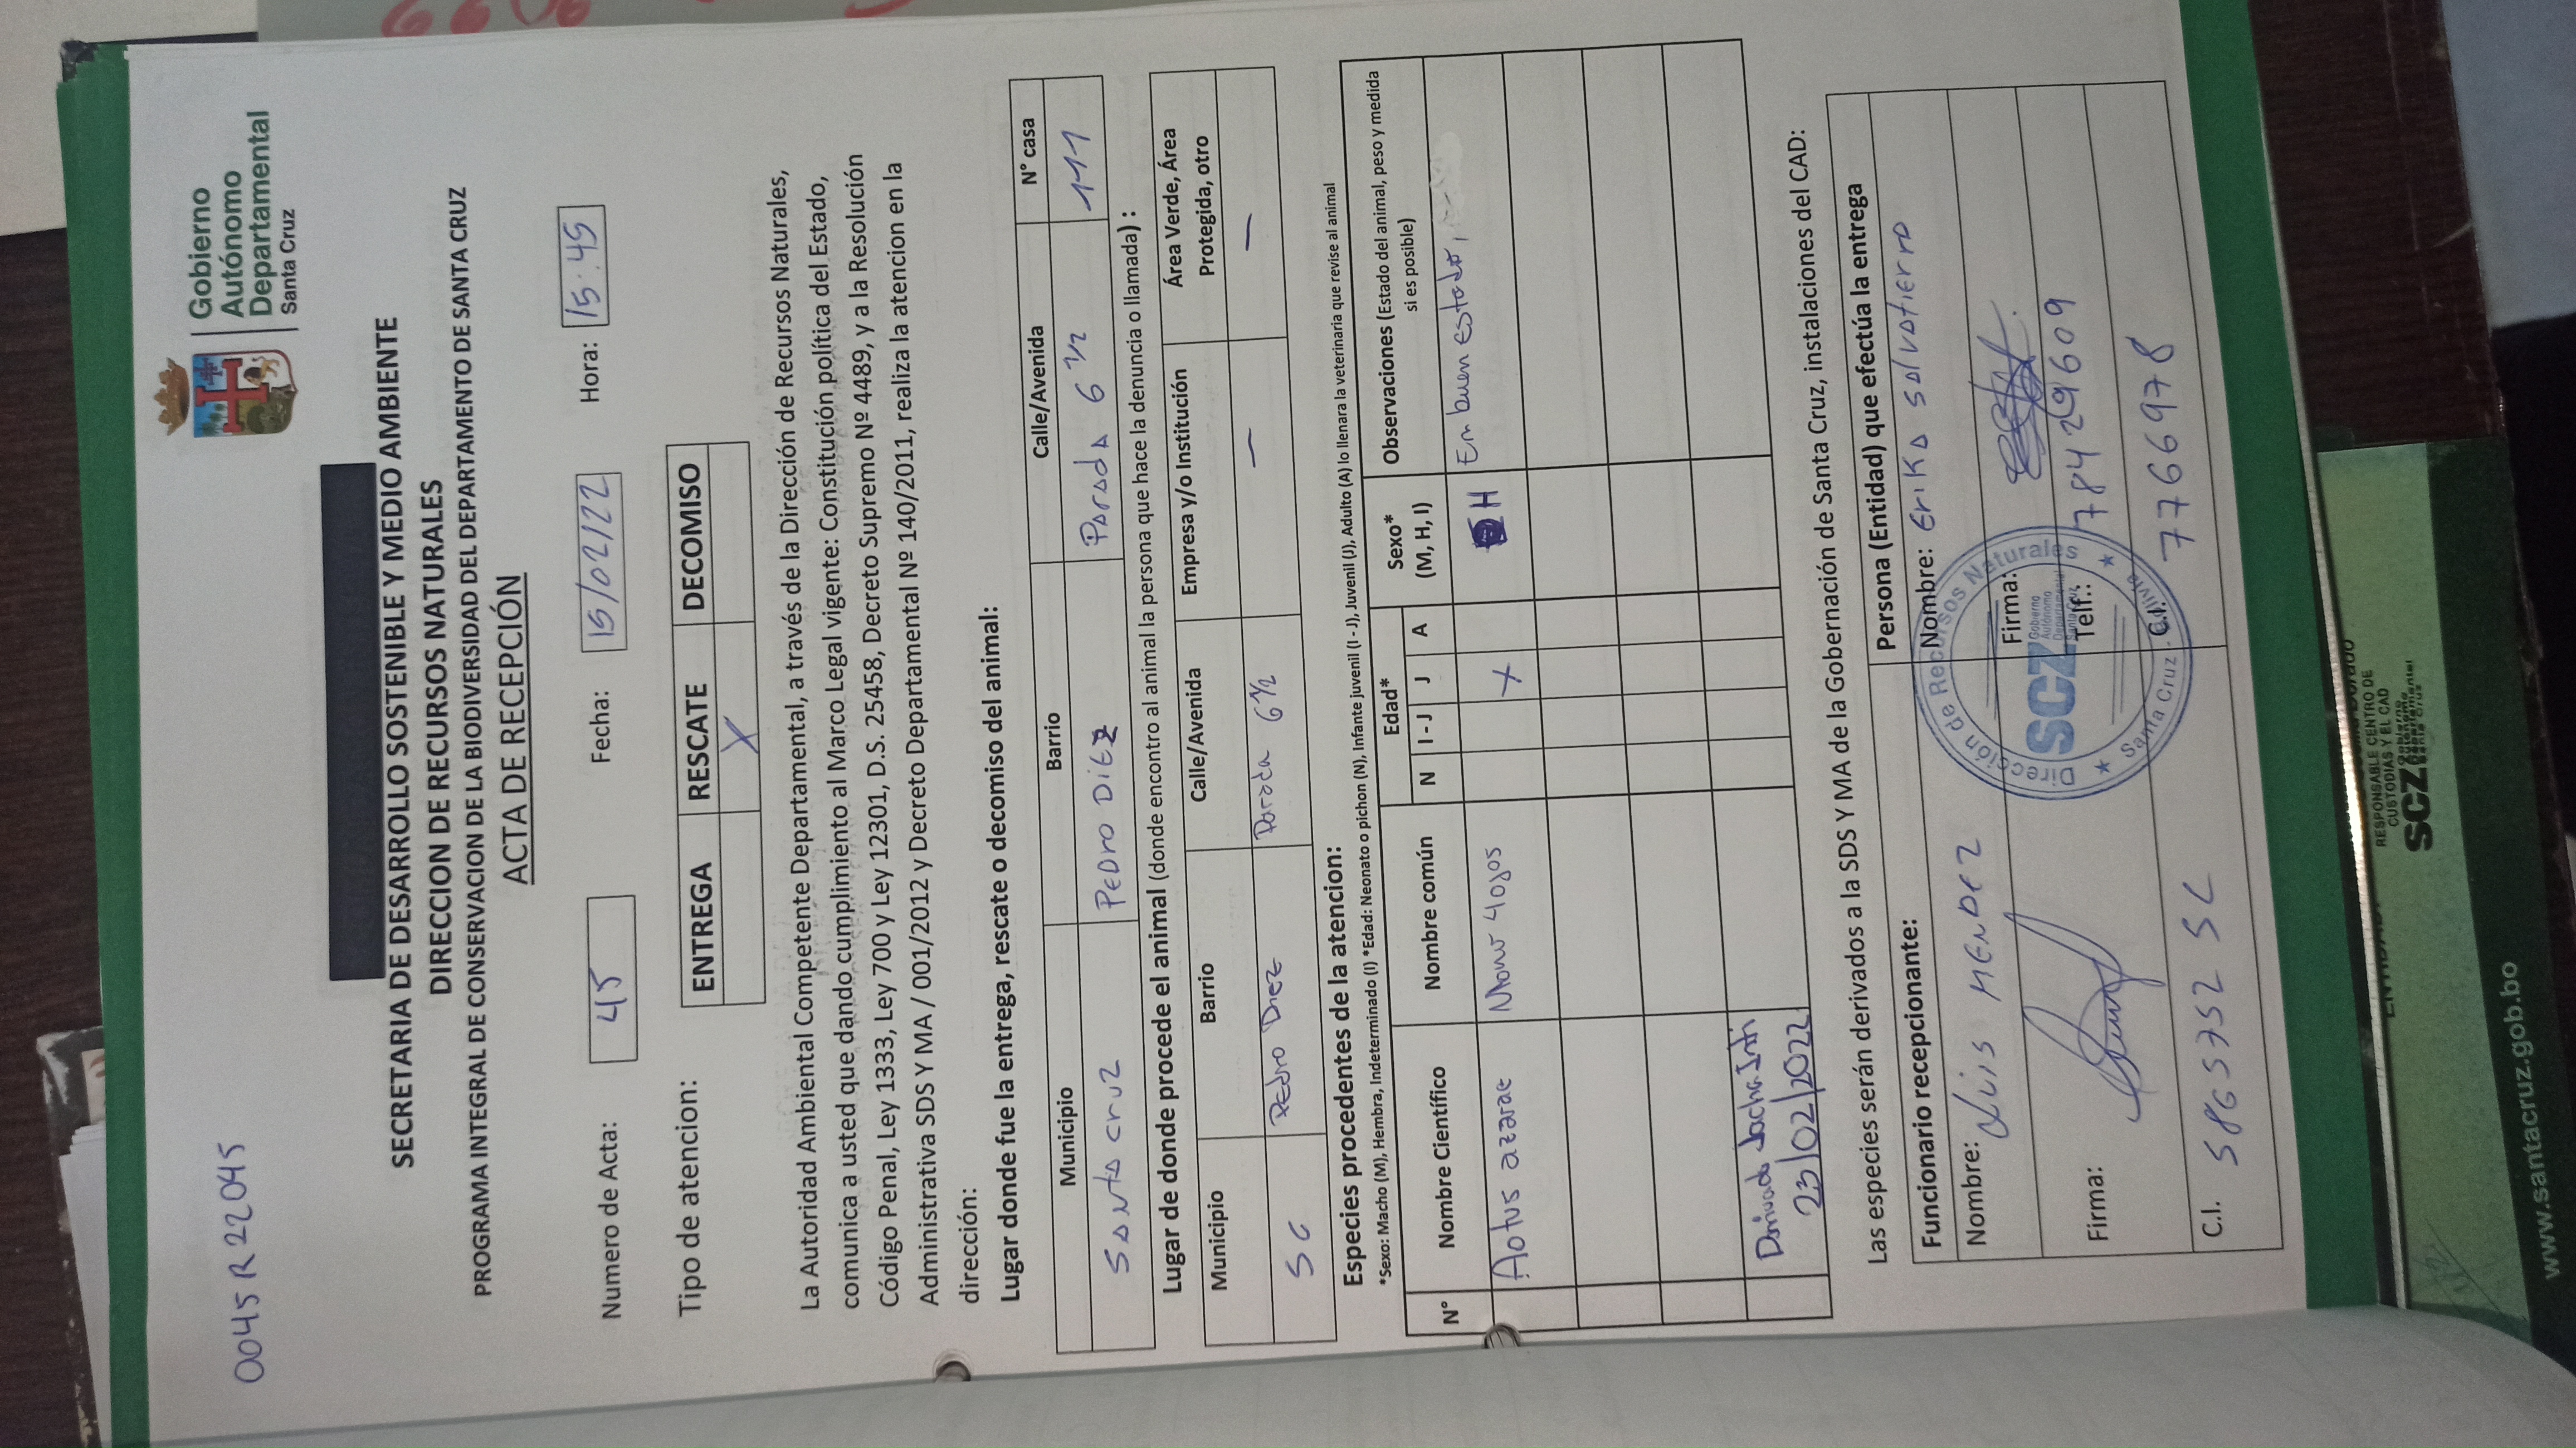 0045 R 22045
Gobierno
Autónomo
Departamental
Santa Cruz
SECRETARIA DE DESARROLLO SOSTENIBLE Y MEDIO AMBIENTE
DIRECCION DE RECURSOS NATURALES
PROGRAMA INTEGRAL DE CONSERVACION DE LA BIODIVERSIDAD DEL DEPARTAMENTO DE SANTA CRUZ
ACTA DE RECEPCIÓN
Numero de Acta: 45 Fecha: 15/02/22 Hora: 15:45
Tipo de atencion: ENTREGA RESCATE DECOMISO
X
La Autoridad Ambiental Competente Departamental, a través de la Dirección de Recursos Naturales,
comunica a usted que dando cumplimiento al Marco Legal vigente: Constitución política del Estado,
Código Penal, Ley 1333, Ley 700 y Ley 12301, D.S. 25458, Decreto Supremo Nº 4489, y a la Resolución
Administrativa SDS Y MA / 001/2012 y Decreto Departamental Nº 140/2011, realiza la atencion en la
dirección:
Lugar donde fue la entrega, rescate o decomiso del animal:
Municipio Barrio Calle/Avenida N° casa
Santa Cruz PEDRO DIEZ Parada 6 1/2 111
Lugar de donde procede el animal (donde encontro al animal la persona que hace la denuncia o llamada) :
Municipio Barrio Calle/Avenida Empresa y/o Institución Área Verde, Área
Protegida, otro
SC Pedro Diez Parada 6 1/2 — —
Especies procedentes de la atencion:
*Sexo: Macho (M), Hembra, Indeterminado (I) *Edad: Neonato o pichon (N), Infante juvenil (I - J), Juvenil (J), Adulto (A) lo llenara la veterinaria que revise al animal
N° Nombre Científico Nombre común Edad* Sexo* Observaciones (Estado del animal, peso y medida
N I - J J A (M, H, I) si es posible)
Aotus azarae Mono 4 ojos X H En buen estado,
Derivado Jacha Inti
23/02/2022
Las especies serán derivados a la SDS Y MA de la Gobernación de Santa Cruz, instalaciones del CAD:
Funcionario recepcionante: Persona (Entidad) que efectúa la entrega
Nombre: Luis MENDEZ Nombre: Erika Salvatierra
Firma: Firma:
Telf.: 78429609
C.I. 5865752 SC C.I. 7766978
Dirección de Recursos Naturales
SCZ Gobierno
Autónomo
Departamental
Santa Cruz
Santa Cruz - Bolivia
RESPONSABLE CENTRO DE
CUSTODIAS Y EL CAD
SCZ Gobierno
Autónomo
Departamental
Santa Cruz
www.santacruz.gob.bo